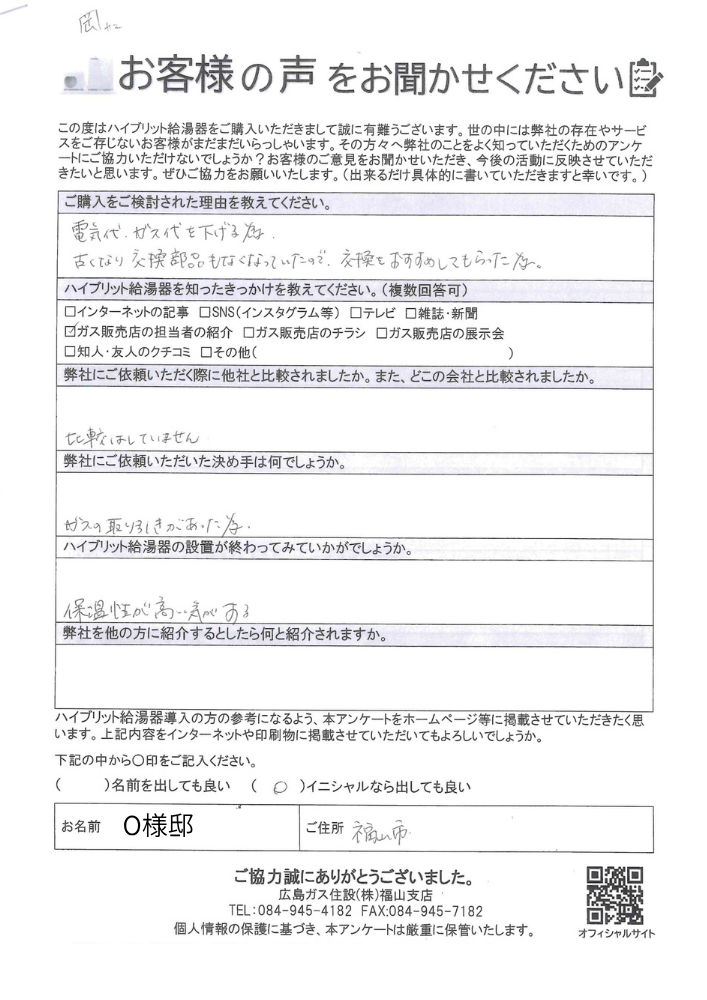 お客様の声をお聞かせください
この度はハイブリット給湯器をご購入いただきまして誠に有難うございます。世の中には弊社の存在やサービ
スをご存じないお客様がまだまだいらっしゃいます。その方々へ弊社のことをよく知っていただくためのアンケ
ートにご協力いただけないでしょうか？お客様のご意見をお聞かせいただき、今後の活動に反映させていただ
きたいと思います。ぜひご協力をお願いいたします。（出来るだけ具体的に書いていただきますと幸いです。）
ご購入をご検討された理由を教えてください。
電気代、ガス代を下げる為。
古くなり交換部品もなくなっていたので、交換をおすすめしてもらった為。
ハイブリット給湯器を知ったきっかけを教えてください。（複数回答可）
□インターネットの記事 □SNS（インスタグラム等） □テレビ □雑誌・新聞
☑ガス販売店の担当者の紹介 □ガス販売店のチラシ □ガス販売店の展示会
□知人・友人のクチコミ □その他（ ）
弊社にご依頼いただく際に他社と比較されましたか。また、どこの会社と比較されましたか。
比較はしていません
弊社にご依頼いただいた決め手は何でしょうか。
ガスの取り引きがあった為。
ハイブリット給湯器の設置が終わってみていかがでしょうか。
保温性が高い気がする
弊社を他の方に紹介するとしたら何と紹介されますか。
ハイブリット給湯器導入の方の参考になるよう、本アンケートをホームページ等に掲載させていただきたく思
います。上記内容をインターネットや印刷物に掲載させていただいてもよろしいでしょうか。
下記の中から〇印をご記入ください。
（ ）名前を出しても良い （ ○ ）イニシャルなら出しても良い
お名前 O様邸 ご住所 福山市
ご協力誠にありがとうございました。
広島ガス住設(株)福山支店
TEL:084-945-4182 FAX:084-945-7182
個人情報の保護に基づき、本アンケートは厳重に保管いたします。
オフィシャルサイト